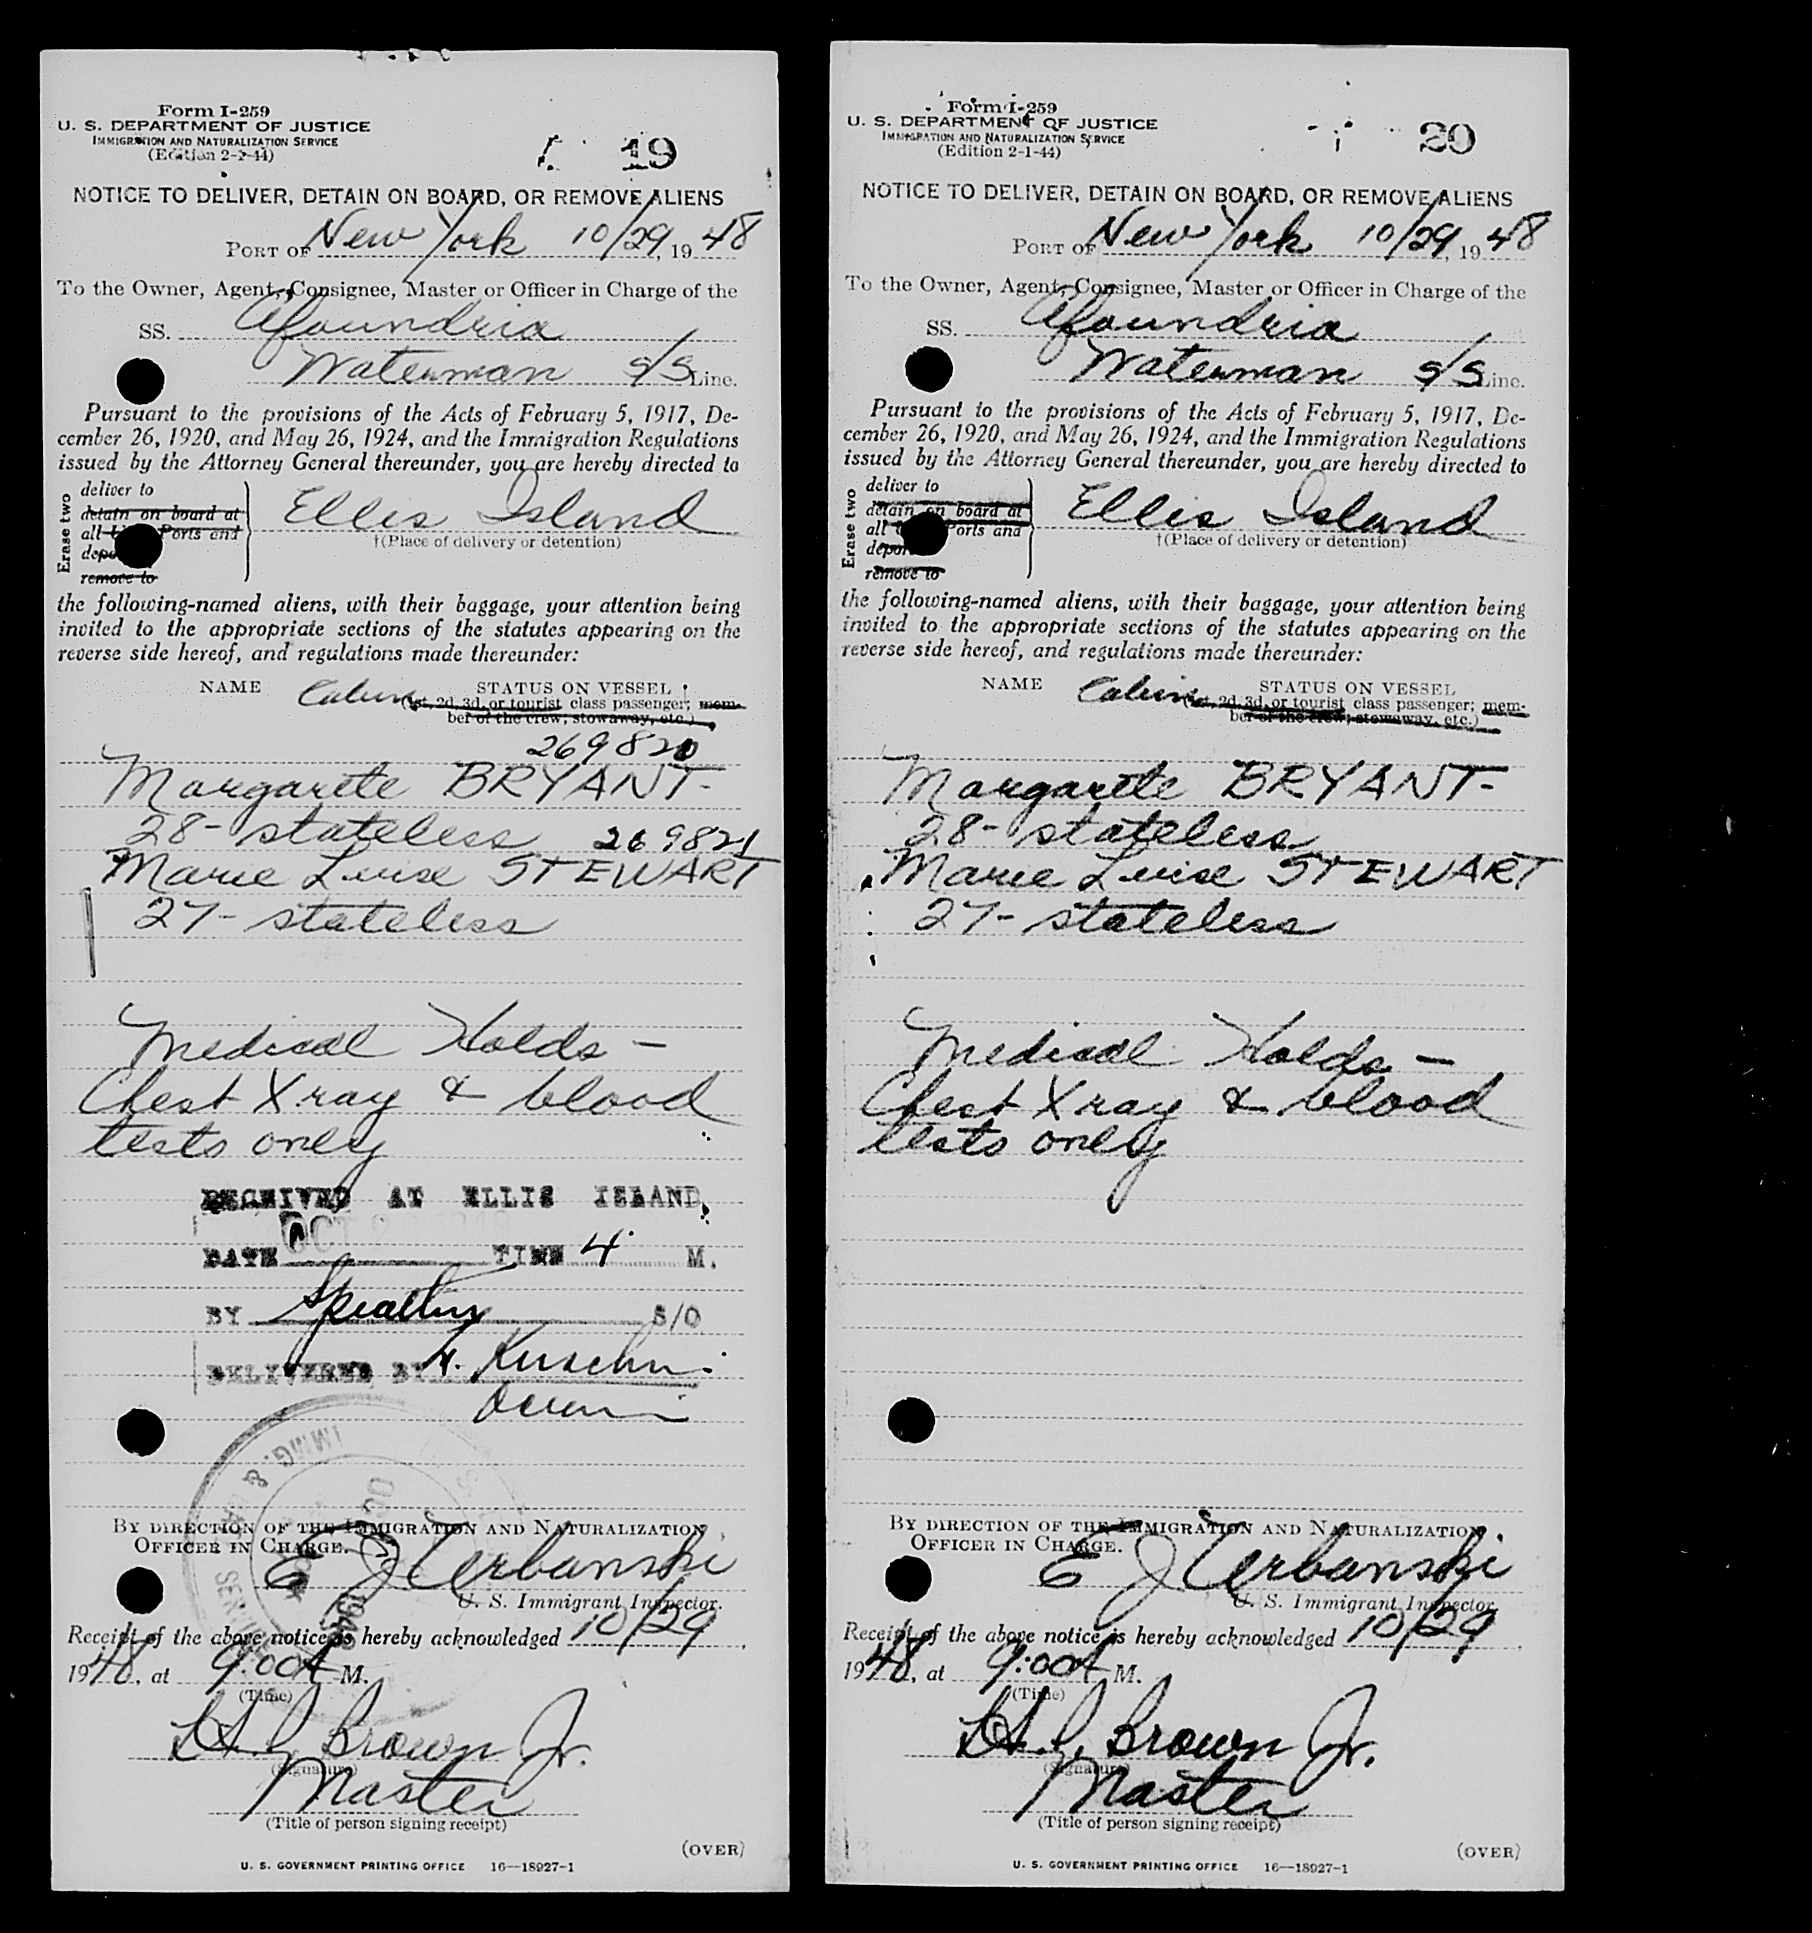 Form I-259
U. S. DEPARTMENT OF JUSTICE
IMMIGRATION AND NATURALIZATION SERVICE
(Edition 2-1-44)
19
NOTICE TO DELIVER, DETAIN ON BOARD, OR REMOVE ALIENS
PORT OF New York 10/29, 19 48
To the Owner, Agent, Consignee, Master or Officer in Charge of the
SS. Afoundria
Waterman S/S Line.
Pursuant to the provisions of the Acts of February 5, 1917, De-
cember 26, 1920, and May 26, 1924, and the Immigration Regulations
issued by the Attorney General thereunder, you are hereby directed to
Erase two
deliver to
detain on board at
all Ports and
remove to
Ellis Island
†(Place of delivery or detention)
the following-named aliens, with their baggage, your attention being
invited to the appropriate sections of the statutes appearing on the
reverse side hereof, and regulations made thereunder:
NAME Cabin STATUS ON VESSEL
(1st, 2d, 3d, or tourist class passenger; mem-
ber of the crew; stowaway, etc.)
269820
Margarete BRYANT-
28- stateless 269821
Marie Luise STEWART
27- stateless
Medical Holds -
Chest X ray & blood
tests only
RECEIVED AT ELLIS ISLAND,
OCT
DATE TIME 4 M.
BY S/O
DELIVERED BY
IMMIG. &
SERVICE
BY DIRECTION OF THE IMMIGRATION AND NATURALIZATION
OFFICER IN CHARGE.
E J Urbanski
U. S. Immigrant Inspector.
Receipt of the above notice is hereby acknowledged 10/29
1948, at 9:00 A M.
(Time)
Brown Jr.
(Signature)
Master
(Title of person signing receipt)
(OVER)
U. S. GOVERNMENT PRINTING OFFICE 16—18927-1
Form I-259
U. S. DEPARTMENT OF JUSTICE
IMMIGRATION AND NATURALIZATION SERVICE
(Edition 2-1-44)
20
NOTICE TO DELIVER, DETAIN ON BOARD, OR REMOVE ALIENS
PORT OF New York 10/29, 19 48
To the Owner, Agent, Consignee, Master or Officer in Charge of the
SS. Afoundria
Waterman S/S Line.
Pursuant to the provisions of the Acts of February 5, 1917, De-
cember 26, 1920, and May 26, 1924, and the Immigration Regulations
issued by the Attorney General thereunder, you are hereby directed to
Erase two
deliver to
detain on board at
all Ports and
remove to
Ellis Island
†(Place of delivery or detention)
the following-named aliens, with their baggage, your attention being
invited to the appropriate sections of the statutes appearing on the
reverse side hereof, and regulations made thereunder:
NAME Cabin STATUS ON VESSEL
(1st, 2d, 3d, or tourist class passenger; mem-
ber of the crew; stowaway, etc.)
Margarete BRYANT-
28- stateless
Marie Luise STEWART
27- stateless
Medical Holds -
Chest X ray & blood
tests only
BY DIRECTION OF THE IMMIGRATION AND NATURALIZATION
OFFICER IN CHARGE.
E J Urbanski
U. S. Immigrant Inspector.
Receipt of the above notice is hereby acknowledged 10/29
1948, at 9:00 A M.
(Time)
Brown Jr.
(Signature)
Master
(Title of person signing receipt)
(OVER)
U. S. GOVERNMENT PRINTING OFFICE 16—18927-1